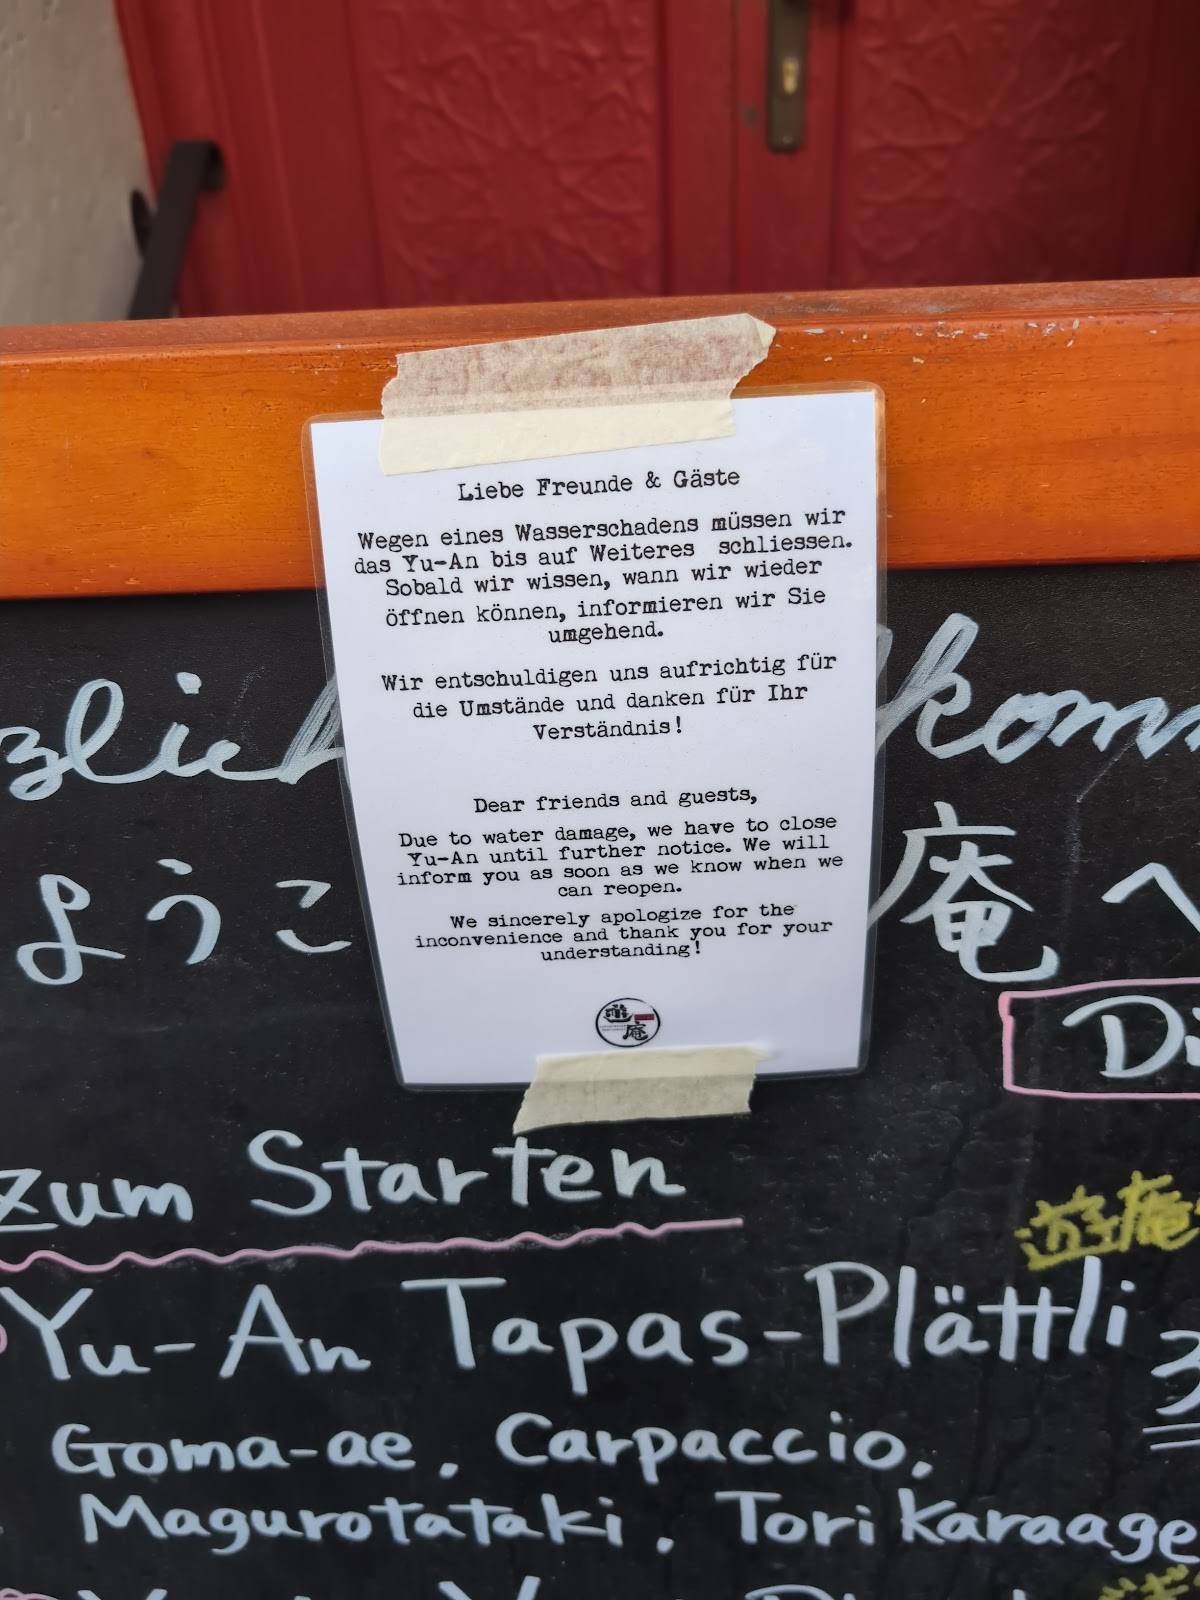 Liebe Freunde & Gäste
Wegen eines Wasserschadens müssen wir
das Yu-An bis auf Weiteres schliessen.
Sobald wir wissen, wann wir wieder
öffnen können, informieren wir Sie
umgehend.
Wir entschuldigen uns aufrichtig für
die Umstände und danken für Ihr
Verständnis!
Dear friends and guests,
Due to water damage, we have to close
Yu-An until further notice. We will
inform you as soon as we know when we
can reopen.
We sincerely apologize for the
inconvenience and thank you for your
understanding!
庵
zlich komm
ようこ 庵へ
Di
zum Starten
遊庵
Yu-An Tapas-Plättli
Goma-ae, Carpaccio,
Magurotataki, Torikaraage